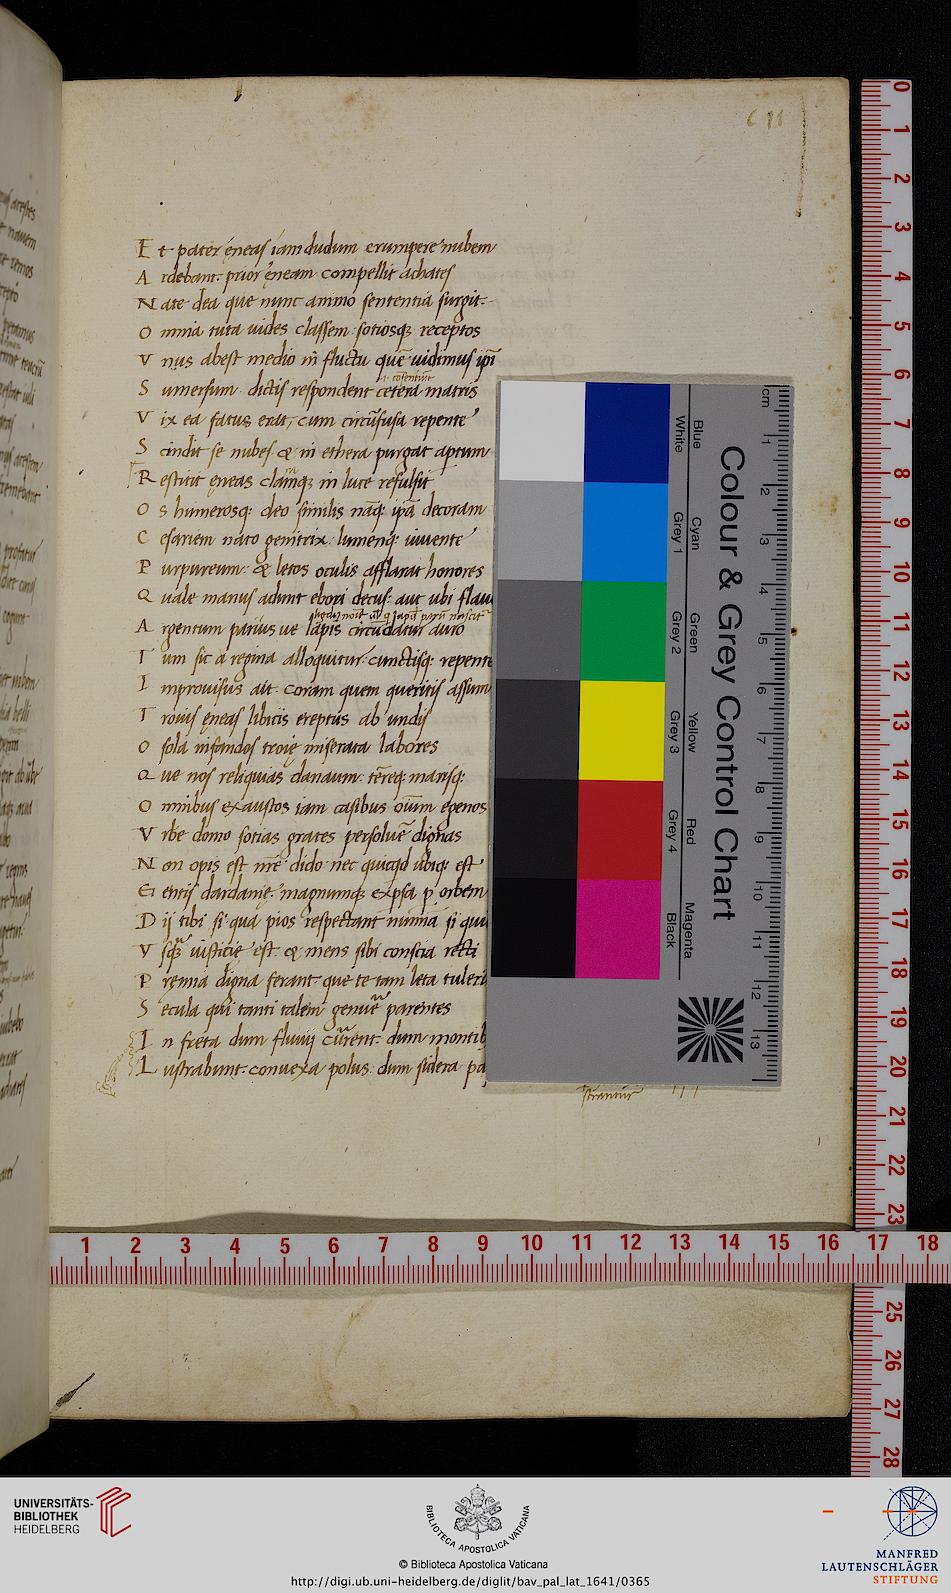 Et pater ęneas iam dudum erumpere nubem
Ardebant. prior ęneam compellit achates
Nate dea que nunc animo sententia surgit.
Omnia tuta uides classem sotiosq; receptos
Vnus abest medio in fluctu quē uidimus ipi
Sumersum. dictis respondent cetera matris
Vix ea fatus erat, cum circūfusa repente
Scindit se nubes & in ethera purgat aptum
Restitit ęneas claraq; in luce refulsit
Os humerosq: deo similis nāq: ipā decoram
Cesariem nato genitrix. lumenq: iuuente
Purpureum: & letos oculis afflarat honores
Quale manus adunt ebori decus: aut ubi flauo
Argentum pariusue lapis circūdatur auro
Tum sic a regina alloquitur. cunctisq: repente
Improuisus ait. coram quem queritis assum
Troius ęneas libicis ereptus ab undis
O sola infandos troię miserata labores
Que nos reliquias danaum. tęreq: marisq:
Omnibus exaustos iam casibus oium egenos
Vrbe domo sotias grates persoluē dignas
Non opis est nrē dido nec quicqd ubiq: est
Gentis dardanię. magnumq; expsa p orbem
Dij tibi si qua pios respectant numia si quid
Vsq iusticie est. & mens sibi conscia recti
Premia digna ferant. que te tam leta tulerū
Secula qui tanti talem genuē parentes
In freta dum fluuij cūrent dum montib
Lustrabunt. conuexa polus dum sidera pa
0 1 2 3 4 5 6 7 8 9 10 11 12 13 14 15 16 17 18 19 20 21 22 23 25 26 27 28
1 2 3 4 5 6 7 8 9 10 11 12 13 14 15 16 17 18
Colour & Grey Control Chart
Blue Cyan Green Yellow Red Magenta
White Grey 1 Grey 2 Grey 3 Grey 4 Black
cm 1 2 3 4 5 6 7 8 9 10 11 12 13
UNIVERSITÄTS-
BIBLIOTHEK
HEIDELBERG
BIBLIOTECA APOSTOLICA VATICANA
© Biblioteca Apostolica Vaticana
http://digi.ub.uni-heidelberg.de/diglit/bav_pal_lat_1641/0365
MANFRED
LAUTENSCHLÄGER
STIFTUNG